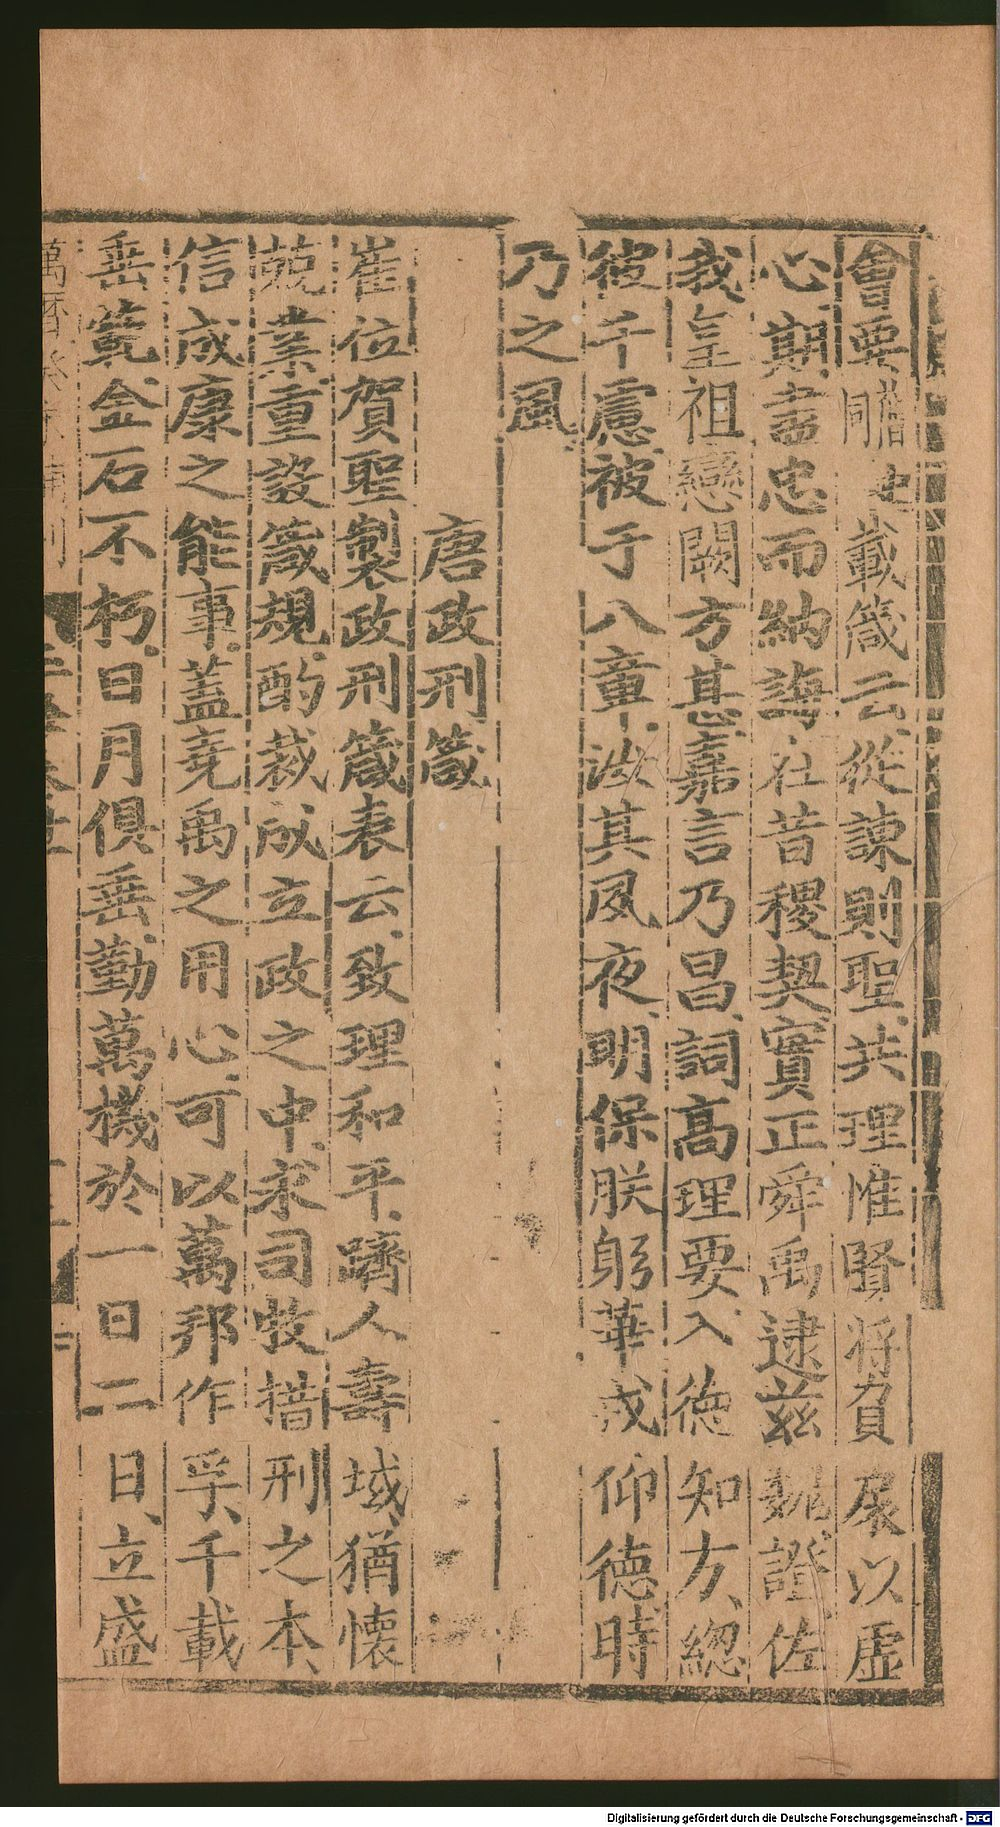 會要贍史載箴云從諫則聖共理惟賢將負扆以虛
心期盡忠而納誨在昔稷契實正舜禹逮茲魏證佐
我皇祖戀闕方甚嘉言乃昌詞高理要入德知方總
彼千慮被于八章汝其夙夜明保朕躬華戎仰德時
乃之風
唐政刑箴
崔位賀聖製政刑箴表云致理和平躋人壽域猶懷
兢業重設箴規酌裁成立政之中求司牧措刑之本
信成康之能事蓋堯禹之用心可以萬邦作孚千載
垂範金石不朽日月俱垂勤萬機於一日二日立盛
萬曆
Digitalisierung gefördert durch die Deutsche Forschungsgemeinschaft - DFG